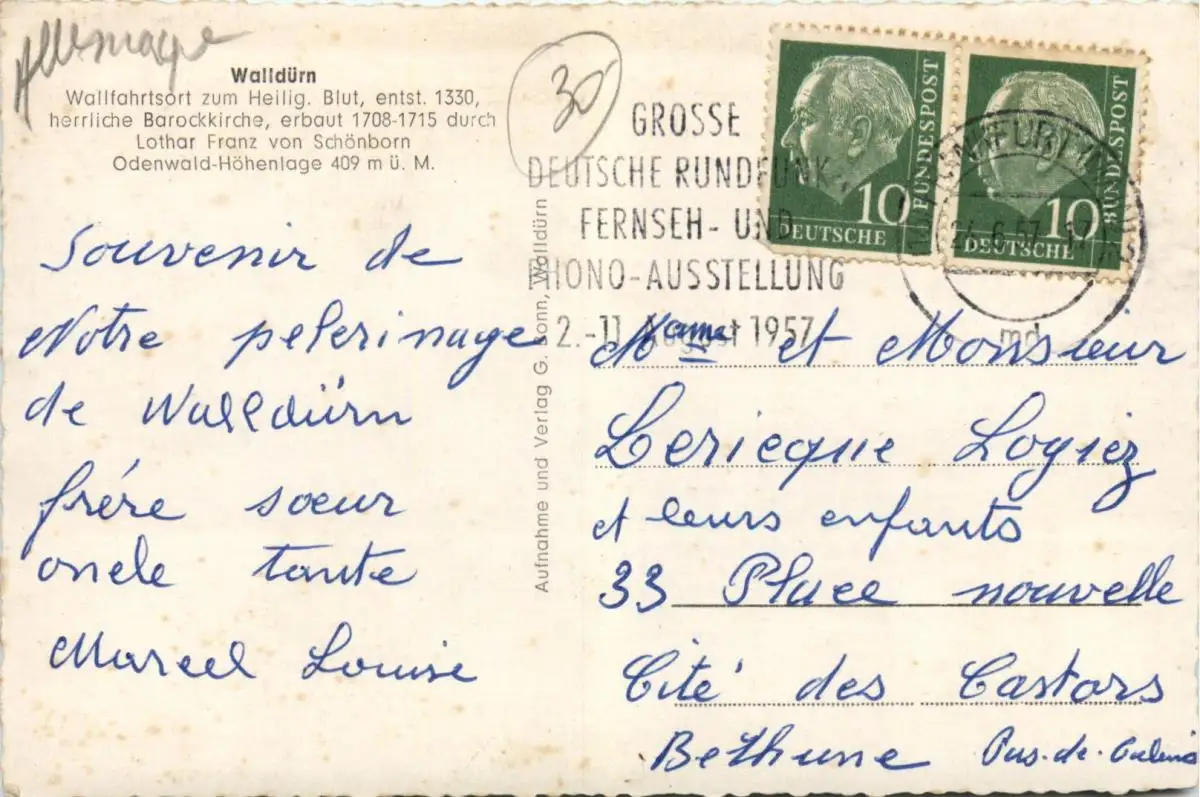 Allemagne
Walldürn
Wallfahrtsort zum Heilig. Blut, entst. 1330,
herrliche Barockkirche, erbaut 1708-1715 durch
Lothar Franz von Schönborn
Odenwald-Höhenlage 409 m ü. M.
30
GROSSE
DEUTSCHE RUNDFUNK-,
FERNSEH- UND
PHONO-AUSSTELLUNG
2.-11. August 1957
DEUTSCHE BUNDESPOST
10
DEUTSCHE BUNDESPOST
10
6.57.-17
md
Souvenir de
Notre pelerinage
de Walldürn
frére sœur
oncle tante
Marcel Louise
Aufnahme und Verlag G. Bonn, Walldürn
et Monsieur
Lericque Logiez
et leurs enfants
33 Place nouvelle
Cité des Castors
Bethune Pas.de.Calais